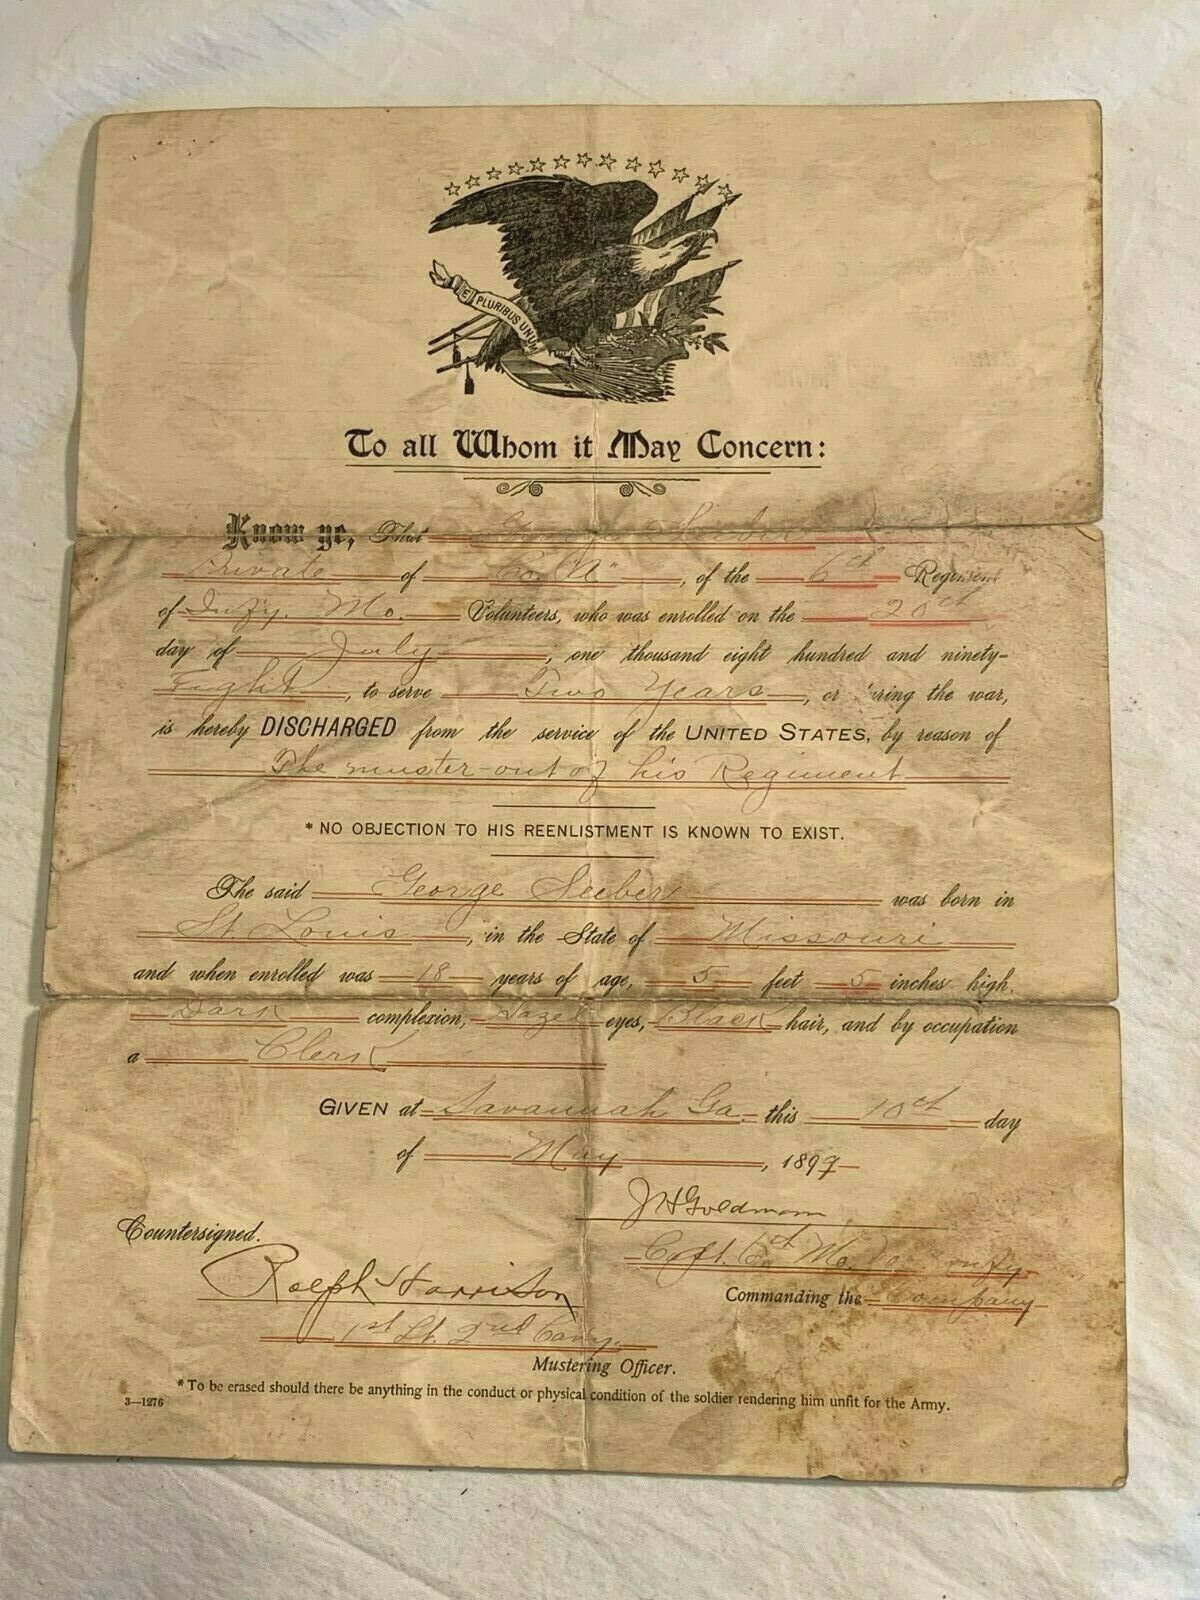 E PLURIBUS UNUM
To all Whom it May Concern:
Know ye, That George Seeber
Private of Co. "A", of the 6th Regiment
of Infy. Mo. Volunteers, who was enrolled on the 20th
day of July, one thousand eight hundred and ninety-
Eight, to serve Two Years, or during the war,
is hereby DISCHARGED from the service of the UNITED STATES, by reason of
The muster-out of his Regiment
* NO OBJECTION TO HIS REENLISTMENT IS KNOWN TO EXIST.
The said George Seeber was born in
St. Louis, in the State of Missouri
and when enrolled was 18 years of age, 5 feet 5 inches high.
Dark complexion, Hazel eyes, Black hair, and by occupation
a Clerk
GIVEN at Savannah Ga. this 10th day
of May, 1899
J H Goldman
Capt. 6th Mo. Infy.
Commanding the Company
Countersigned.
Ralph Harrison
1st Lt. 2nd Cavy.
Mustering Officer.
* To be erased should there be anything in the conduct or physical condition of the soldier rendering him unfit for the Army.
3—1276